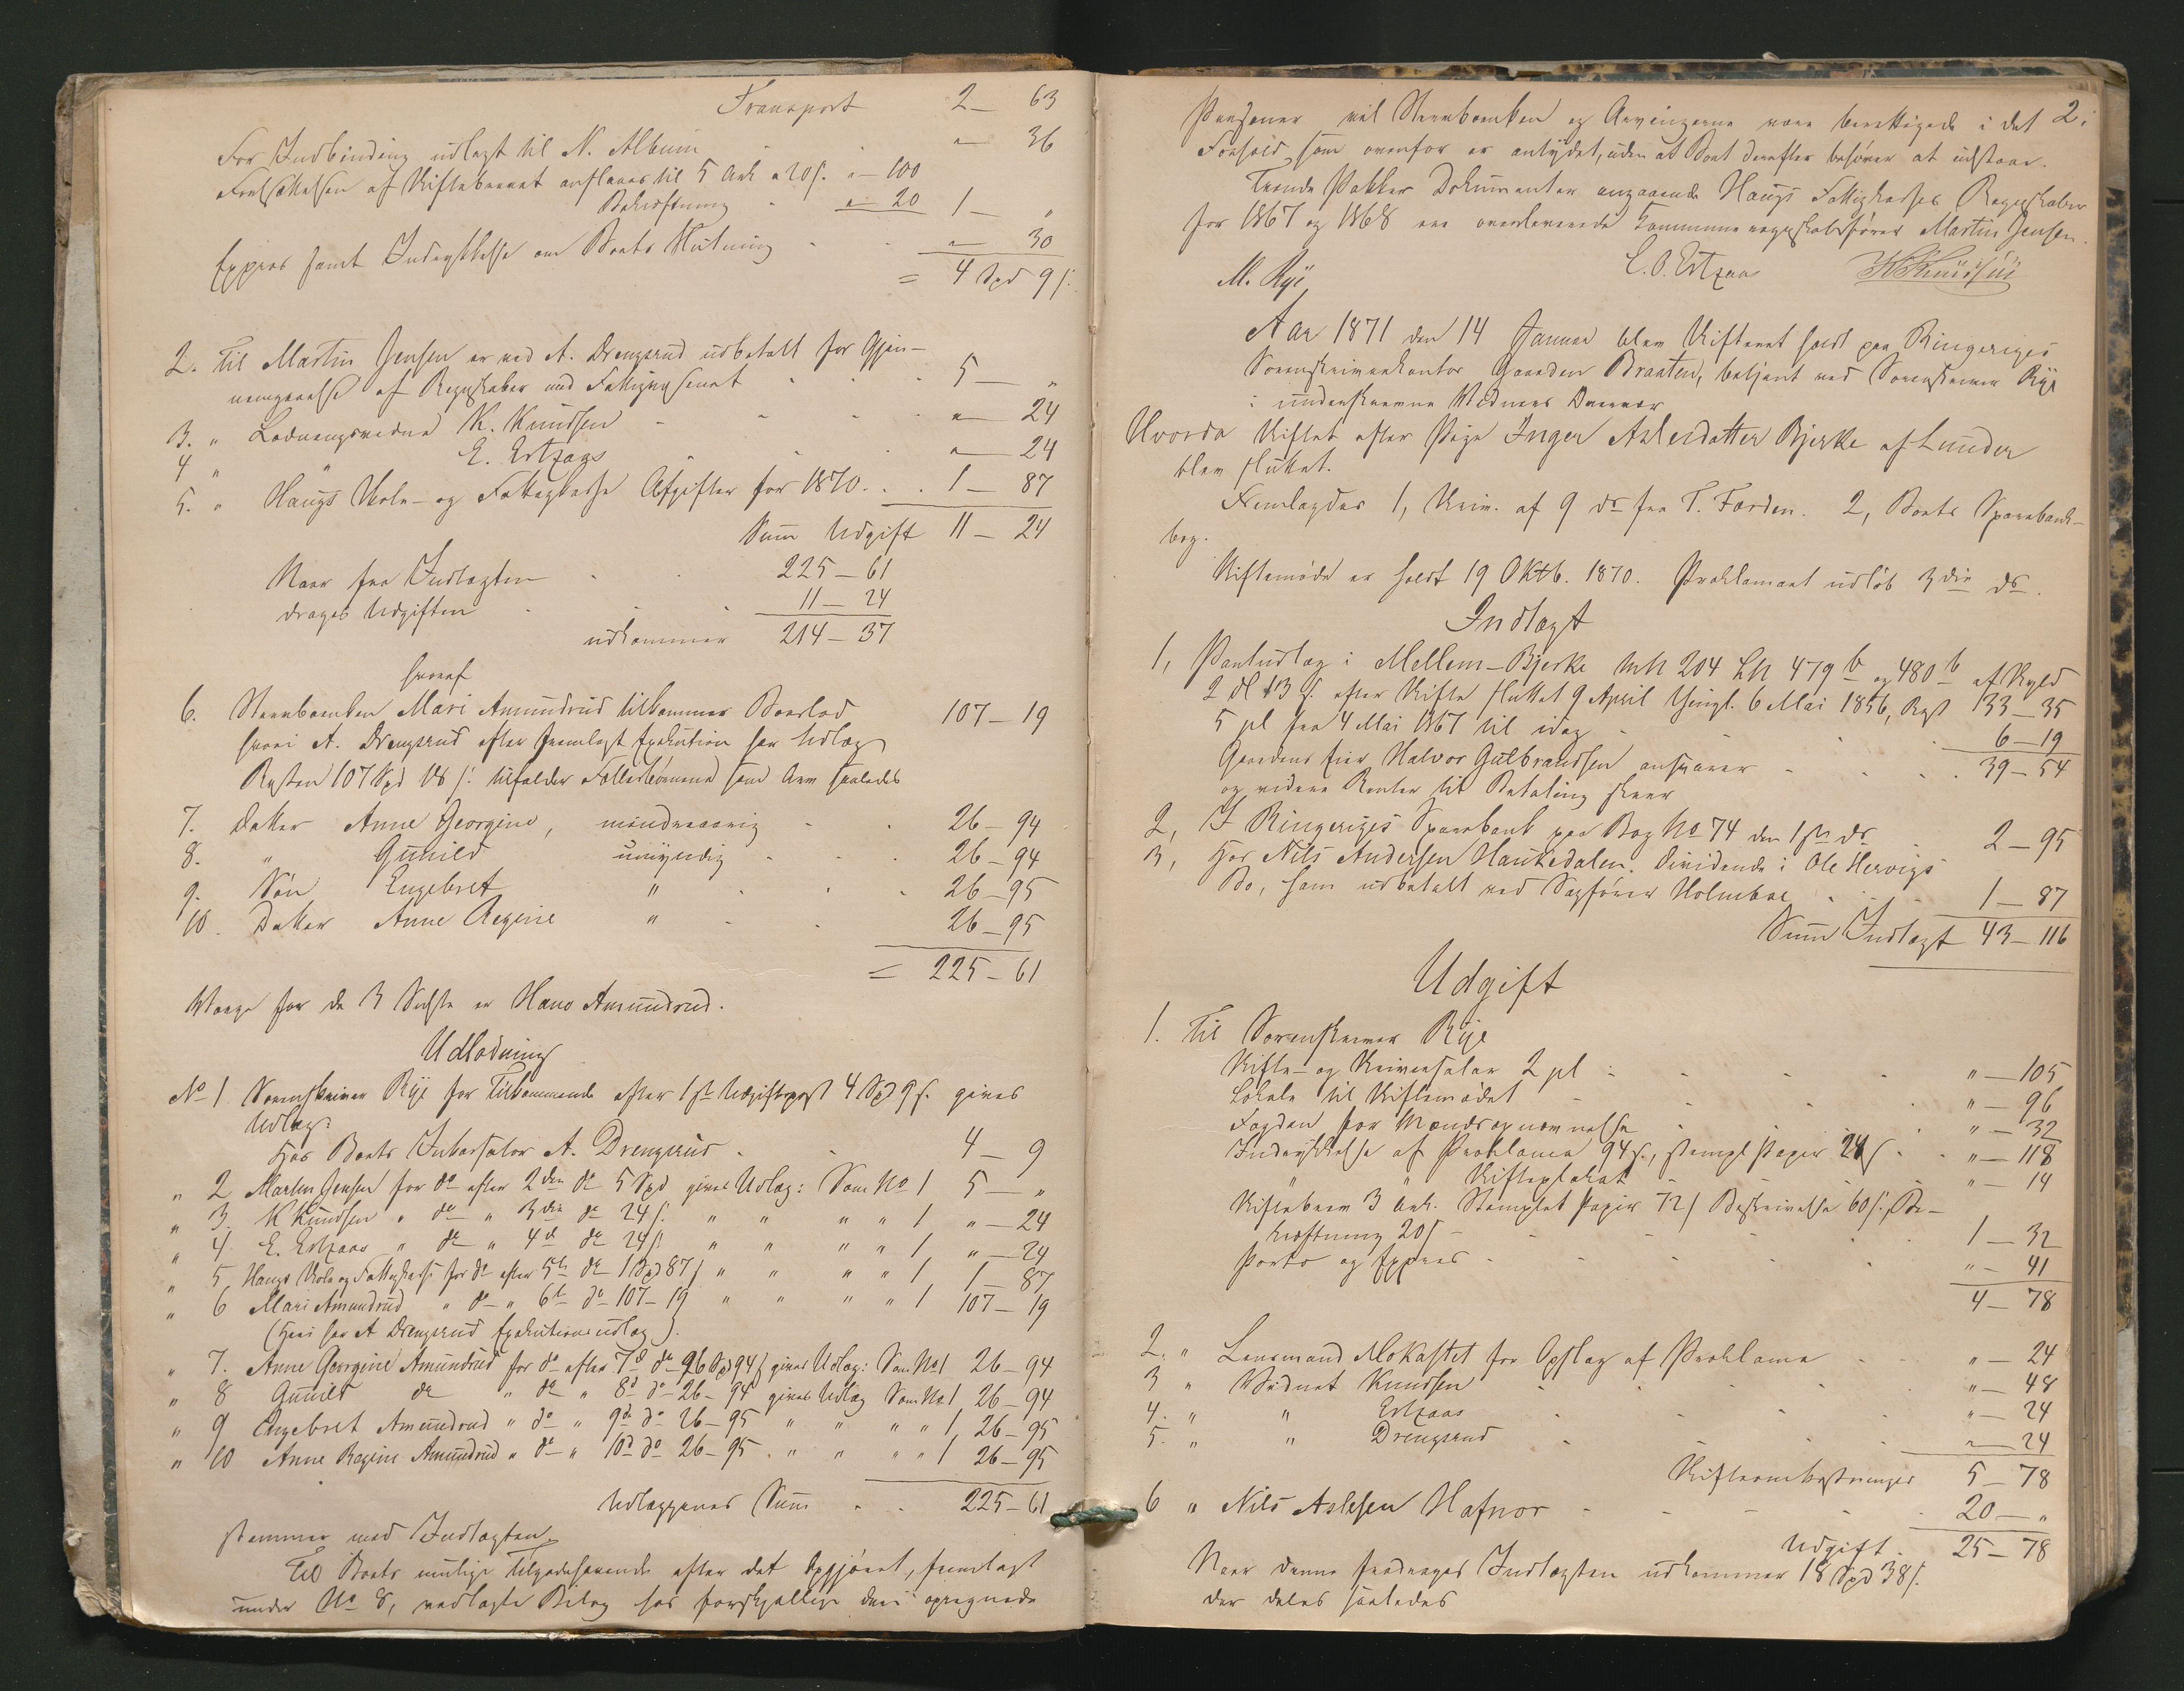 Transport 2 — 63
For Indbinding udlagt til N. Album " — 36
Forfattelsen af Skiftebrevet ansl. til 5 Ark a 20 s. " — 100
Bekræftning " — 20 1 — "
Expres samt Indrykkelse om Boets Slutning " — 30
= 4 Spd 9 s.
2. Til Martin Jensen er ved A. Drengsrud udbetalt for Gjen-
nemgaaelse af Regnskaber med Fattigvæsenet 5 — "
3. " Lodningsvidne K. Knudsen " — 24
4 " " E. Ertzaas " — 24
5. " Haugs Skole- og Fattigkasse Afgifter for 1870. 1 — 87
Sum Udgift 11 — 24
Naar fra Indtægten 225 — 61
drages Udgiften 11 — 24
udkommer 214 — 37
hvoraf
6. Stervboenken Mari Amundrud tilkommer Boeslod 107 — 19
hvori A. Drengsrud efter fremlagt Exekution har Udlæg
Resten 107 Spd 18 s. tilfalder Fællesbørnene som Arv saaledes
7. Datter Anne Georgine, mindreaarig 26 — 94
8. " Gunild umyndig 26 — 94
9. Søn Engebret " 26 — 95
10. Datter Anne Regine " 26 — 95
= 225 — 61
Værge for de 3 Sidste er Hans Amundrud.
Udlodning
No 1 Sorenskriver Rye for Tilkommende efter 1ste Udgiftspost 4 Spd 9 s. gives
Udlæg:
Hos Boets Inkassator A. Drengsrud 4 — 9
" 2 Martin Jensen for do efter 2den do 5 Spd gives Udlæg: Som No 1 5 — "
" 3. K Knudsen " do " 3die do 24 s. " " " " 1 " — 24
" 4 E. Ertzaas " do " 4de do 24 s. " " " " 1 " — 24
" 5 Haugs Skole og Fattigkasse for do efter 5te do 1 Spd 87 s " " " " 1 1 — 87
" 6 Mari Amundrud " do " 6te do 107 — 19 " " " " 1 107 — 19
(Heri har A Drengsrud Exekutionsudlæg).
" 7. Anne Georgine Amundrud for do efter 7d do 26 Spd 94 s gives Udlæg: Som No 1 26 — 94
" 8 Gunild do " do " 8d do 26 — 94 gives Udlæg Som No 1 26 — 94
" 9 Engebret Amundrud " do " 9d do 26 — 95 " " " " 1 26 — 95
" 10 Anne Regine Amundrud " do " 10d do 26 — 95 " " " " 1 26 — 95
Udlæggenes Sum 225 — 61
stemmer med Indtægten.
Til Boets mulige Tilgodehavende efter det Opgjøret, fremlagt
under No 8, vedlagte Bilag hos forskjellige deri opregnede
2.
Personer vil Stervboenken og Arvingerne være berettigede i det
Forhold, som ovenfor er antydet, uden at Boet derefter behøver at udstaae.
Tvende Pakker Dokumenter angaaende Haugs Fattigkasses Regnskaber
for 1867 og 1868 ere overleverede Kommuneregnskabsfører Martin Jensen.
M. Rye E. O. Ertzaas K Knudsen
Aar 1871 den 14 Januar blev Skifteret holdt paa Ringeriges
Sorenskriverkontor Gaarden Braaten, betjent ved Sorenskriver Rye
i underskrevne Vidners Overvær
Hvorda Skiftet efter Pige Inger Aslesdatter Bjerke af Lunder
blev sluttet.
Fremlagdes 1, Skriv. af 9 ds fra T. Førden. 2, Boets Sparebank-
bog.
Skiftemøde er holdt 19 Oktb. 1870. Proklamaet udløb 3die ds.
Indtægt
1, Pantudlæg i Mellem-Bjerke MN 204 LN 479 b og 480 b af Skyld
2 dl 13 s. efter Skifte sluttet 9 April thingl. 6 Mai 1856, Rest 33 — 35
5 pCt fra 4 Mai 1867 til idag 6 — 19
Gaardens Eier Halvor Gulbrandsen ansvarer 39 — 54
og videre Renter til Betaling skeer
2, I Ringeriges Sparebank paa Bog No 74 den 1ste ds 2 — 95
3, Hos Nils Andersen Hautedalen. Dividende i Ole Hervigs
Bo, som udbetalt ved Sagfører Holmboe 1 — 87
Sum Indtægt 43 — 116
Udgift
1. Til Sorenskriver Rye
Skifte- og Skriversalær 2 pCt " — 105
Lokale til Skiftemødet " — 96
Fogden for Mændsopnævnelse " — 32
Indrykkelse af Proklama 94 s., stempl Papir 24 s " — 118
" " Skifteplakat " — 14
Skiftebrev 3 Ark. Stemplet Papir 72 s Beskrivelse 60 s. Be-
kræftning 20 s 1 — 32
Porto og Expres " — 41
4 — 78
2. " Lensmand Mokastet for Opslag af Proklama " — 24
3 " Vidnet Knudsen " — 48
4. " " Ertzaas " — 24
5. " " Drengsrud " — 24
Skifteomkostninger 5 — 78
6 " Nils Aslesen Hafnor 20 — "
Udgift 25 — 78
Naar denne fradrages Indtægten udkommer 18 Spd 38 s.
der deles saaledes